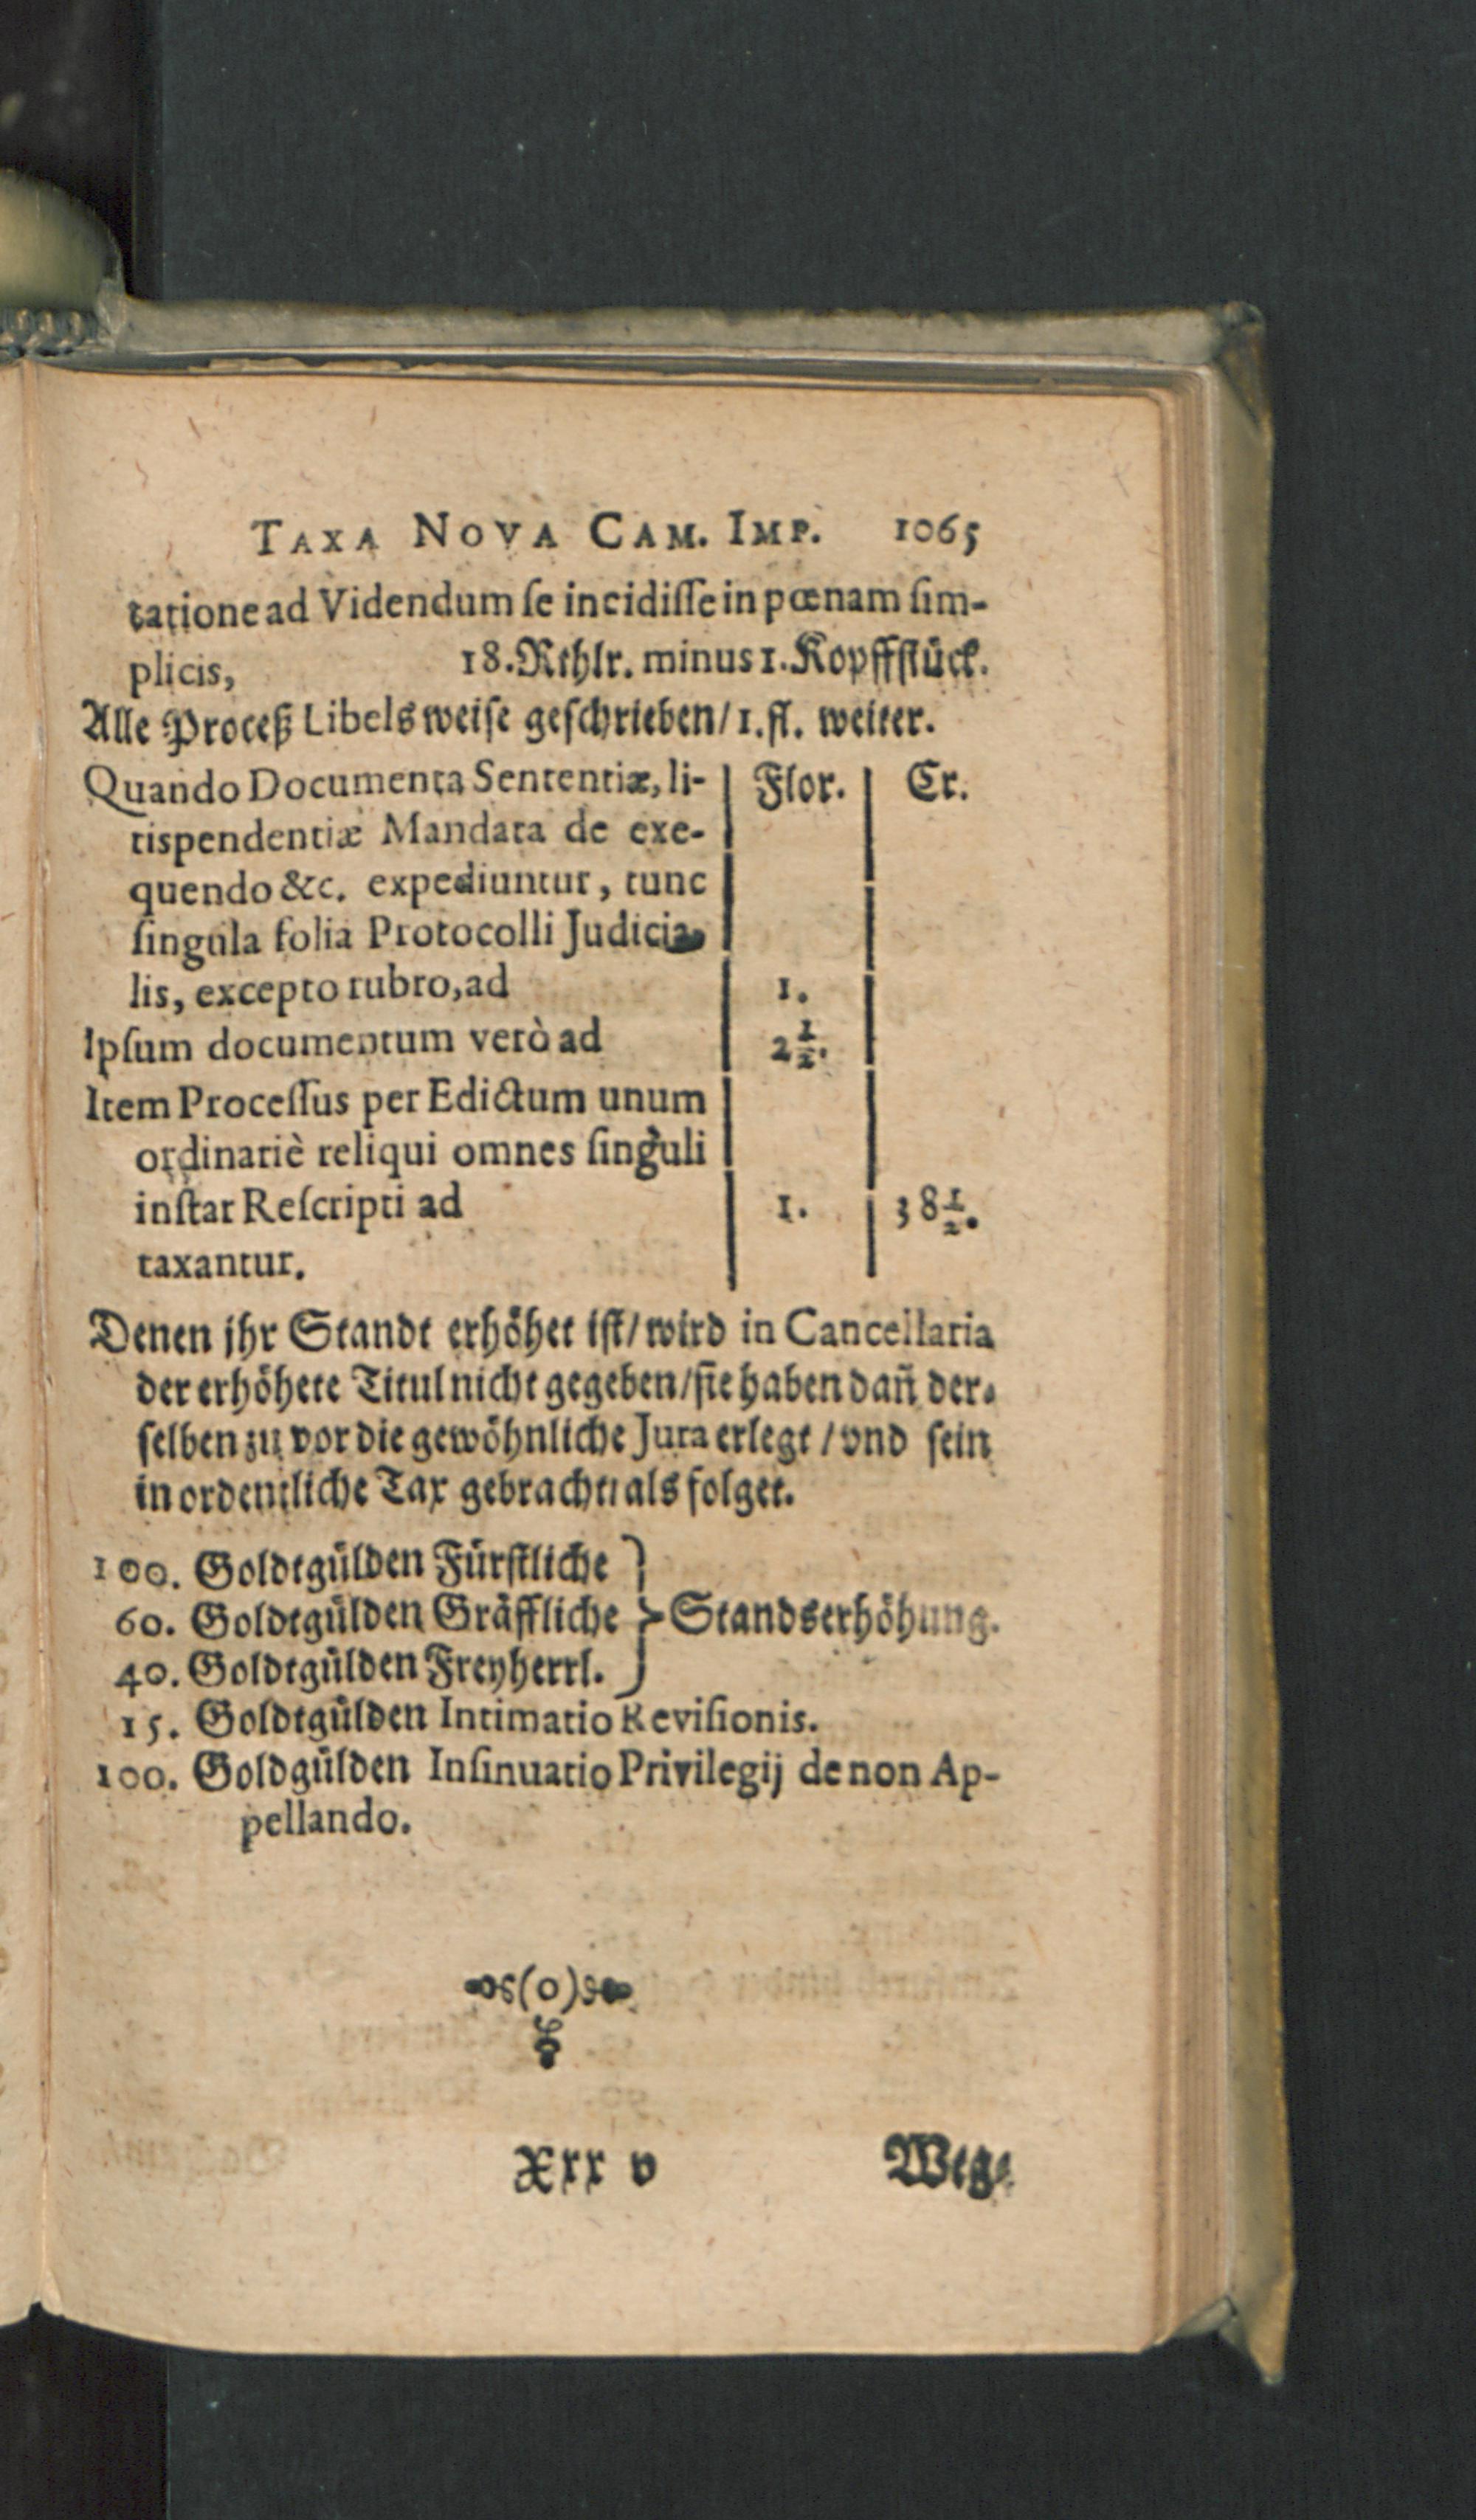 TAXA NOVA CAM. IMP. 1065
tatione ad Videndum ſe incidiſſe in pœnam ſim-
plicis, 18. Rthlr. minus 1. Kopffſtück.
Alle Proceß Libels weiſe geſchrieben / 1. fl. weiter.
Quando Documenta Sententiæ, li- Flor. Cr.
tispendentiæ Mandata de exe-
quendo &c. expediuntur, tunc
ſingula folia Protocolli Judicia-
lis, excepto rubro, ad 1.
Ipſum documentum verò ad 2 1/2.
Item Proceſſus per Edictum unum
ordinariè reliqui omnes ſinguli
inſtar Reſcripti ad 1. 38 1/2.
taxantur.
Denen jhr Standt erhöhet iſt / wird in Cancellaria
der erhöhete Titul nicht gegeben / ſie haben dañ der-
ſelben zu vor die gewöhnliche Jura erlegt / vnd ſein
in ordentliche Tax gebracht / als folget.
100. Goldtgülden Fürſtliche
60. Goldtgülden Gräffliche } Standserhöhung.
40. Goldtgülden Freyherrl.
15. Goldtgülden Intimatio Reviſionis.
100. Goldgülden Inſinuatio Privilegij de non Ap-
pellando.
(o)
Xxx v Weg-